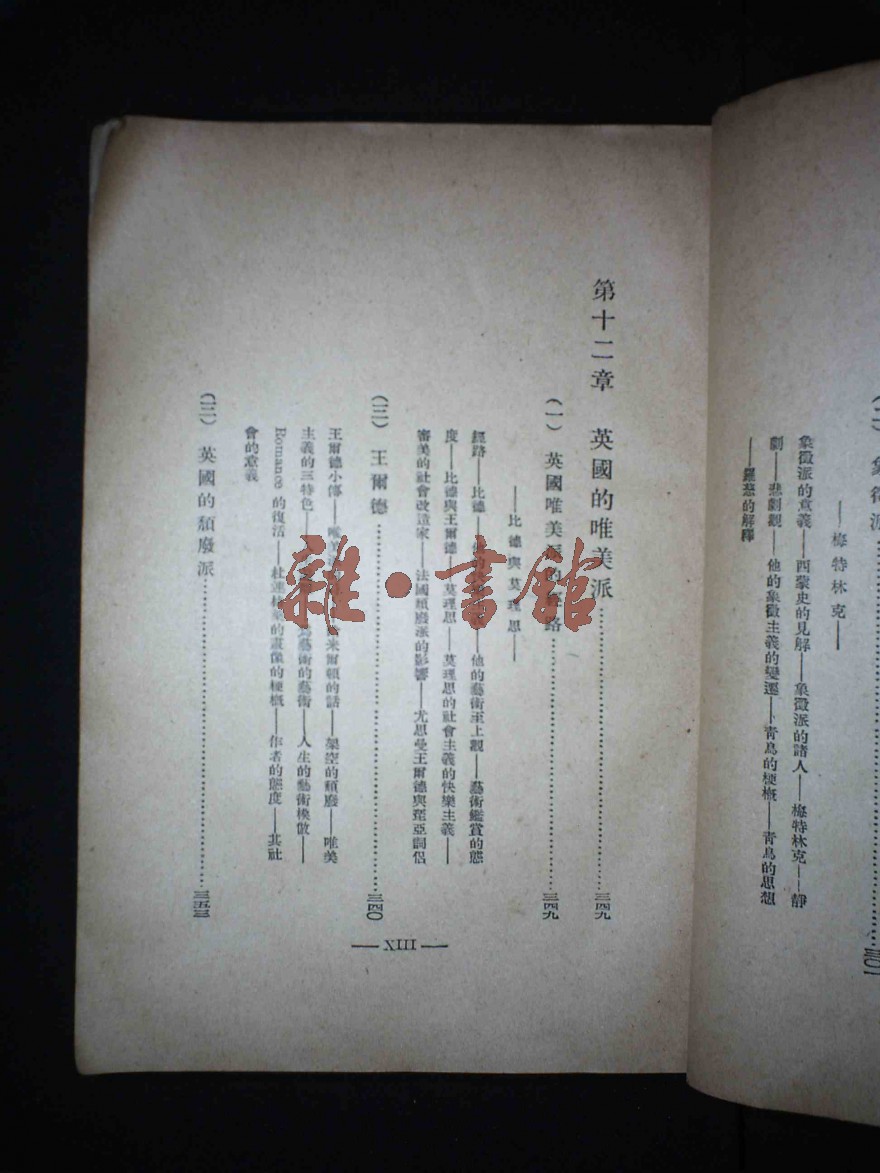 (二)象徵派…………三〇一
——梅特林克——
象徵派的意義——西蒙史的見解——象徵派的諸人——梅特林克——靜
劇——悲劇觀——他的象徵主義的變遷——青鳥的梗概——青鳥的思想
——羅慈的解釋
第十二章 英國的唯美派…………三四九
(一)英國唯美派的經路…………三四九
——比德與莫理思——
經路——比德——他的藝術至上觀——藝術鑑賞的態
度——比德與王爾德——莫理思——莫理思的社會主義的快樂主義——
審美的社會改造家——法國頹廢派的影響——尤思曼王爾德與
(三)王爾德…………三四〇
王爾德小傳——唯美——米爾頓的話——架空的頹廢——唯美
主義的三特色——藝術的藝術——人生的藝術模倣——
Romance 的復活——的畫像的梗概——作者的態度——其社
會的意義
(三)英國的頹廢派…………三五三
— XIII —
雜·書館